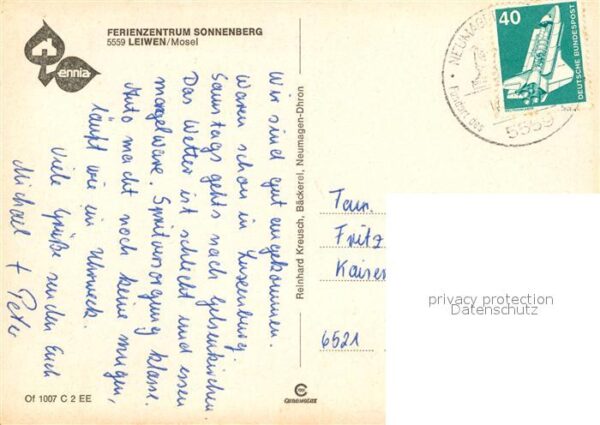 FERIENZENTRUM SONNENBERG
5559 LEIWEN/Mosel
Pennia
Wir sind gut angekommen.
Waren schon in Luxemburg.
Samstags gehts nach Gelsenkirchen
Das Wetter ist schlecht und essen
mangelware. Spritversorgung klasse.
Auto macht noch keine mugen,
läuft wie ein Uhrwerk.
Viele Grüße senden Euch
Michael + Peter
Reinhard Kreusch, Bäckerei, Neumagen-Dhron
Of 1007 C 2 EE
40
DEUTSCHE BUNDESPOST
NEUMAGEN
5559
Fam.
Fritz
Kaiser
6521
privacy protection
Datenschutz